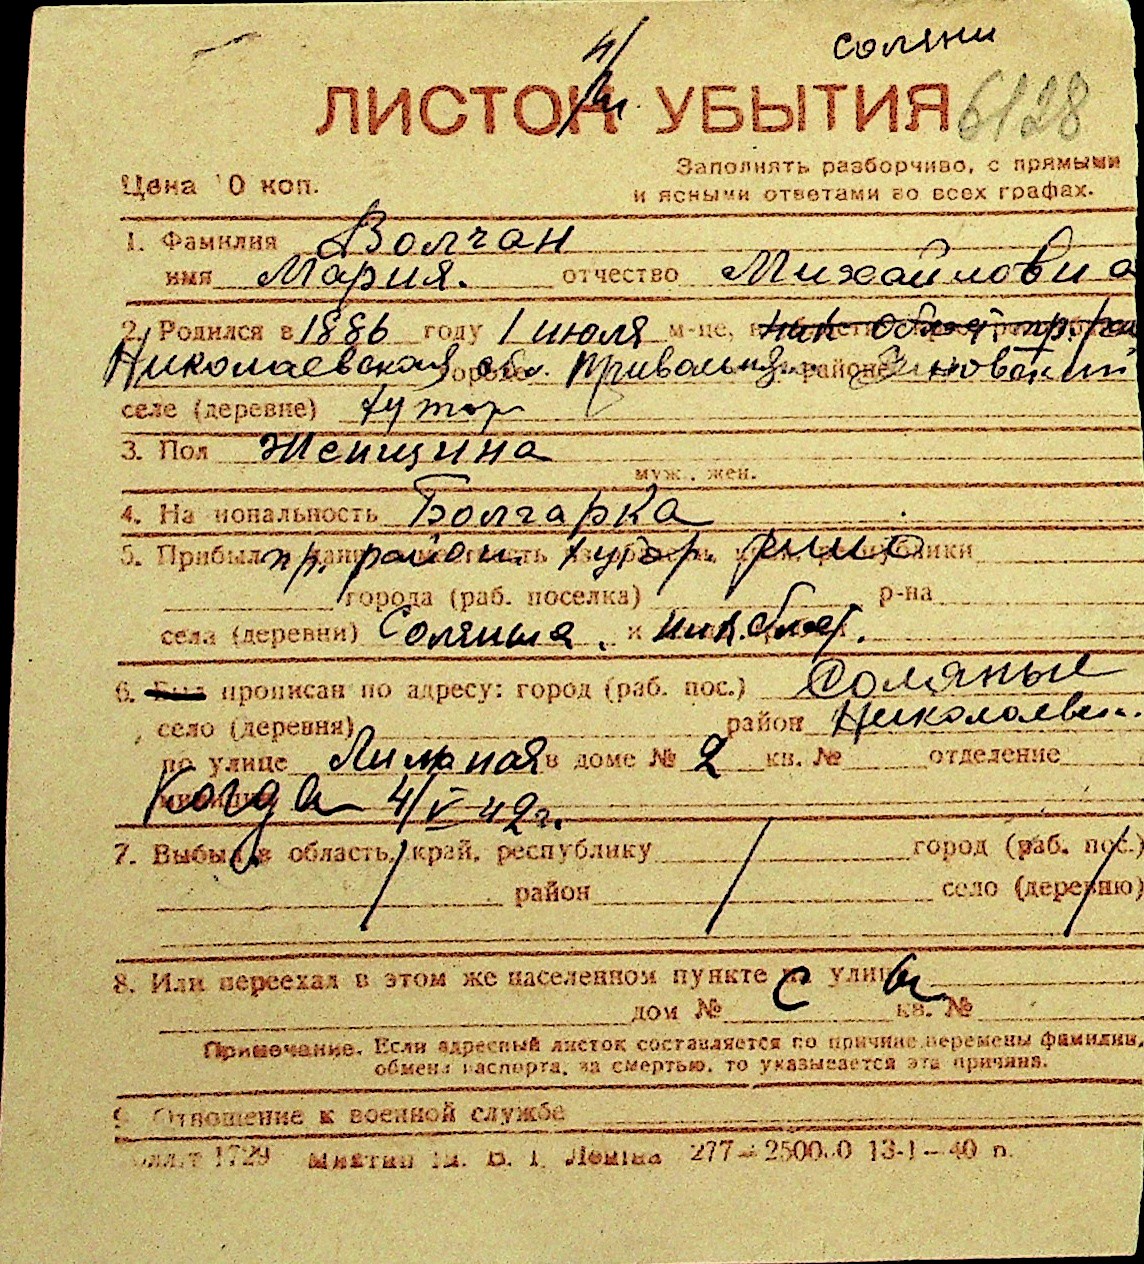 соляни
4/
ЛИСТОК УБЫТИЯ 6128
Заполнять разборчиво, с прямыми
Цена 10 коп.
и ясными ответами во всех графах.
1. Фамилия Волчан
имя Мария. отчество Михайловна
2. Родился в 1886 году 1 июля м-це,
Николаевская обл. городе районе
селе (деревне) хутор
3. Пол Женщина
муж., жен.
4. Национальность Болгарка
5. Прибыл пр. район. хутор республики
города (раб. поселка) р-на
села (деревни) Соляныя, ник. област.
6. Был прописан по адресу: город (раб. пос.) Соляные
село (деревня) район Николаевск.
по улице в доме № 2 кв. № отделение
милиции Когда 4/V 42 г.
7. Выбыл в область, край, республику город (раб. пос.)
район село (деревню)
8. Или переехал в этом же населенном пункте на улицу
дом № кв. №
Примечание. Если адресный листок составляется по причине перемены фамилии,
обмена паспорта, за смертью, то указывается эта причина.
9. Отношение к военной службе
1729 Леніна 277—25000 13-I—40 п.